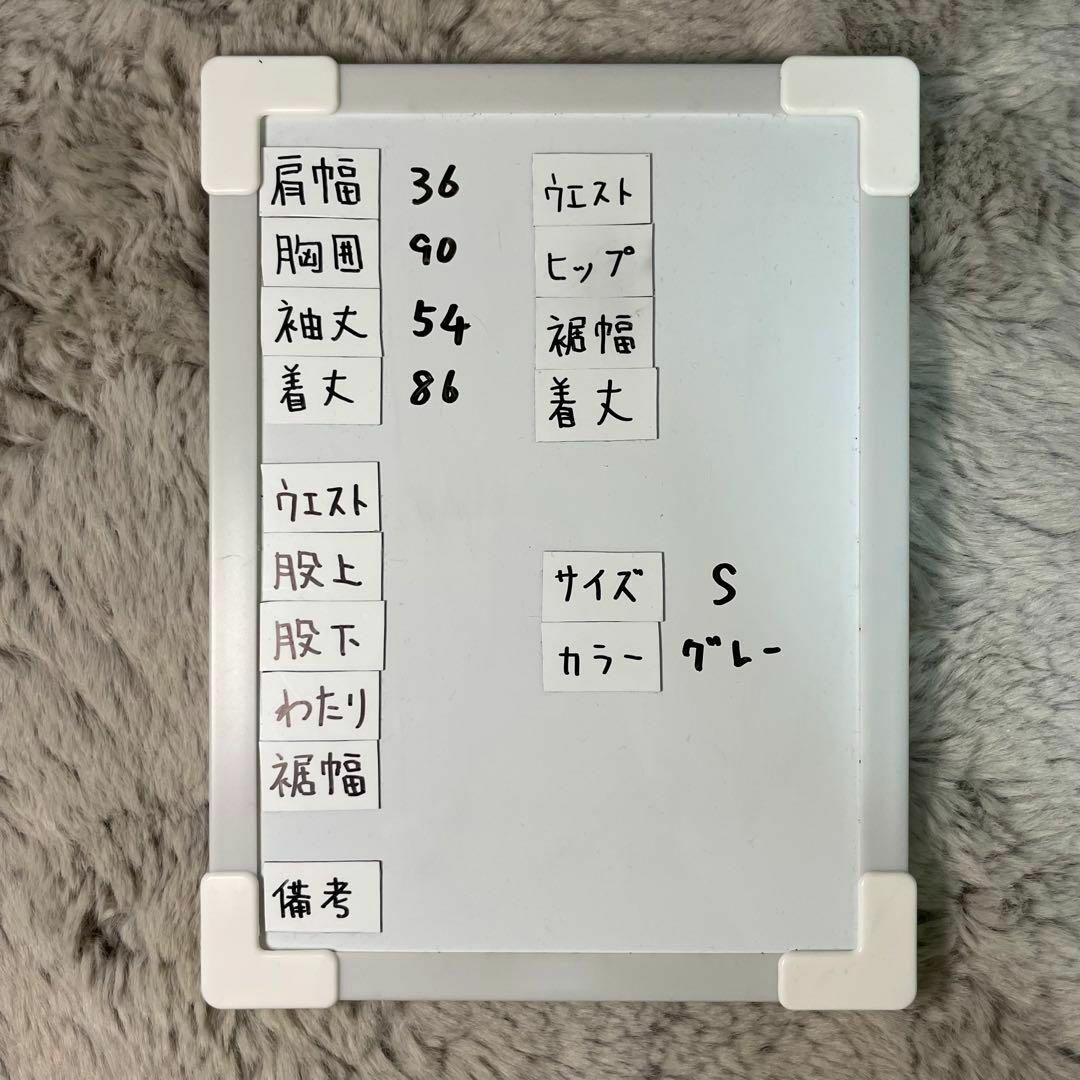 肩幅 36
胸囲 90
袖丈 54
着丈 86
ウエスト
股上
股下
わたり
裾幅
備考
ウエスト
ヒップ
裾幅
着丈
サイズ S
カラー グレー